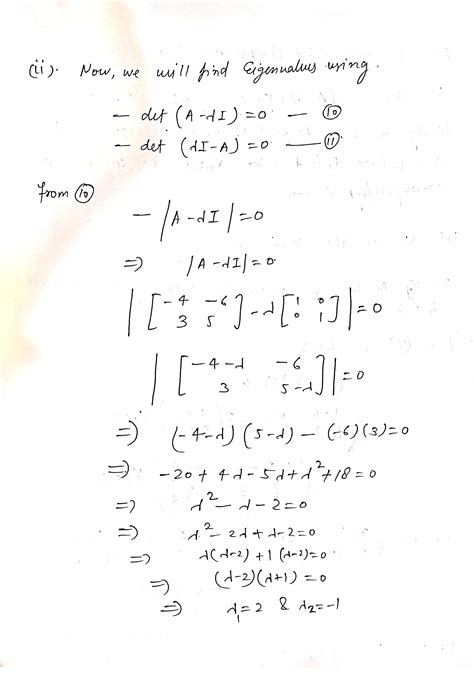 (ii). Now, we will find Eigenvalues using.
— det (A-λI) = 0 — ⑩
— det (λI-A) = 0 — ⑪
from ⑩
— |A-λI| = 0
⇒ |A-λI| = 0
| [ -4 -6 ; 3 5 ] - λ [ 1 0 ; 0 1 ] | = 0
| [ -4-λ -6 ; 3 5-λ ] | = 0
⇒ (-4-λ) (5-λ) - (-6)(3) = 0
⇒ -20 + 4λ - 5λ + λ² + 18 = 0
⇒ λ² - λ - 2 = 0
⇒ λ² - 2λ + λ - 2 = 0
⇒ λ(λ-2) + 1 (λ-2) = 0
⇒ (λ-2)(λ+1) = 0
⇒ λ₁ = 2 & λ₂ = -1